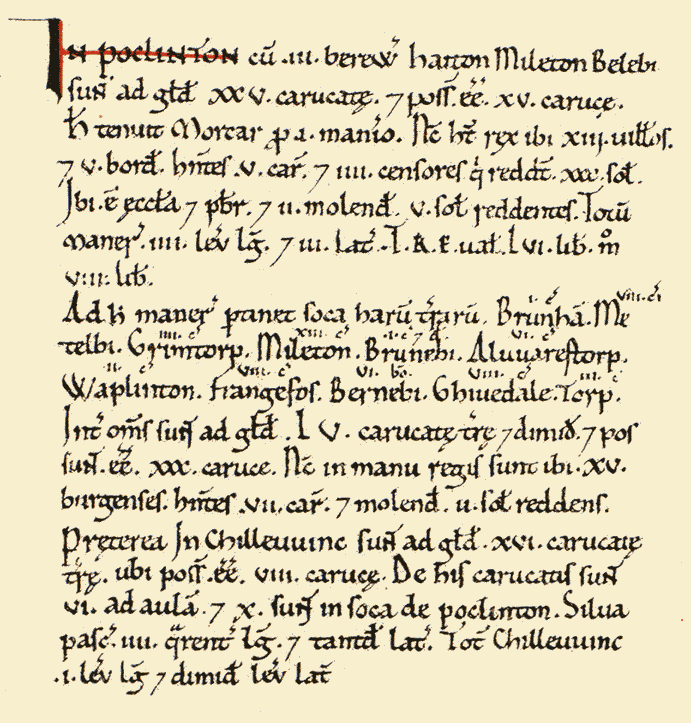 IN POCLINTON cū .iii. bereẘ hațton Mileton Belebi
suñ ad glđ xxv. carucatę. ⁊ poss̄. ēē. xv. carucę.
ħ tenuit Morcar p̱ .i. manio. Nc̄ ht̄ rex ibi xiij. uill̄os.
⁊ v. borđ. hñtes .v. car̄. ⁊ iiii. censores q́ reddt̄. xxx. sol̄.
Ibi. ē ęccl̄a ⁊ pb̄r. ⁊ ii. molenđ. v. sol̄ reddentes. Totū
maner̄. iiii. lev̄ lḡ. ⁊ iii. lat̄. T. R. E. ual̄. Lvi. lib̄. m̊
viii. lib̄.
Ad ħ maner̄ ptinet soca harū tr̄arū. Brun̄hā. Me viii. c̄i
telbi. Grimtorp. Mileton. Brunebi. Aluuarestorp.
Waplinton. Frangefos. Bernebi. Ghiuedale. Torp.
Int̄ om̄s suñ ad glđ. L v. carucatę tr̄ę ⁊ dimiđ. ⁊ pos
suñ. ēē. xxx. caruce. Nc̄ in manu regis sunt ibi. xv.
burgenses. hñtes .vii. car̄. ⁊ molenđ. u. sol̄ reddens.
Pręterea In Chilleuuinc suñ ad glđ. xvi. carucatę
tr̄ę. ubi poss̄ .ēē. viii. carucę. De his carucatis suñ
vi. ad aulā. ⁊ x. suñ in soca de poclinton. Silua
pasc̄. iiii. qrent̄ lḡ. ⁊ tantđ lat̄. Tot̄ Chilleuuinc
.i. lev̄ lḡ ⁊ dimiđ lev̄ lat̄